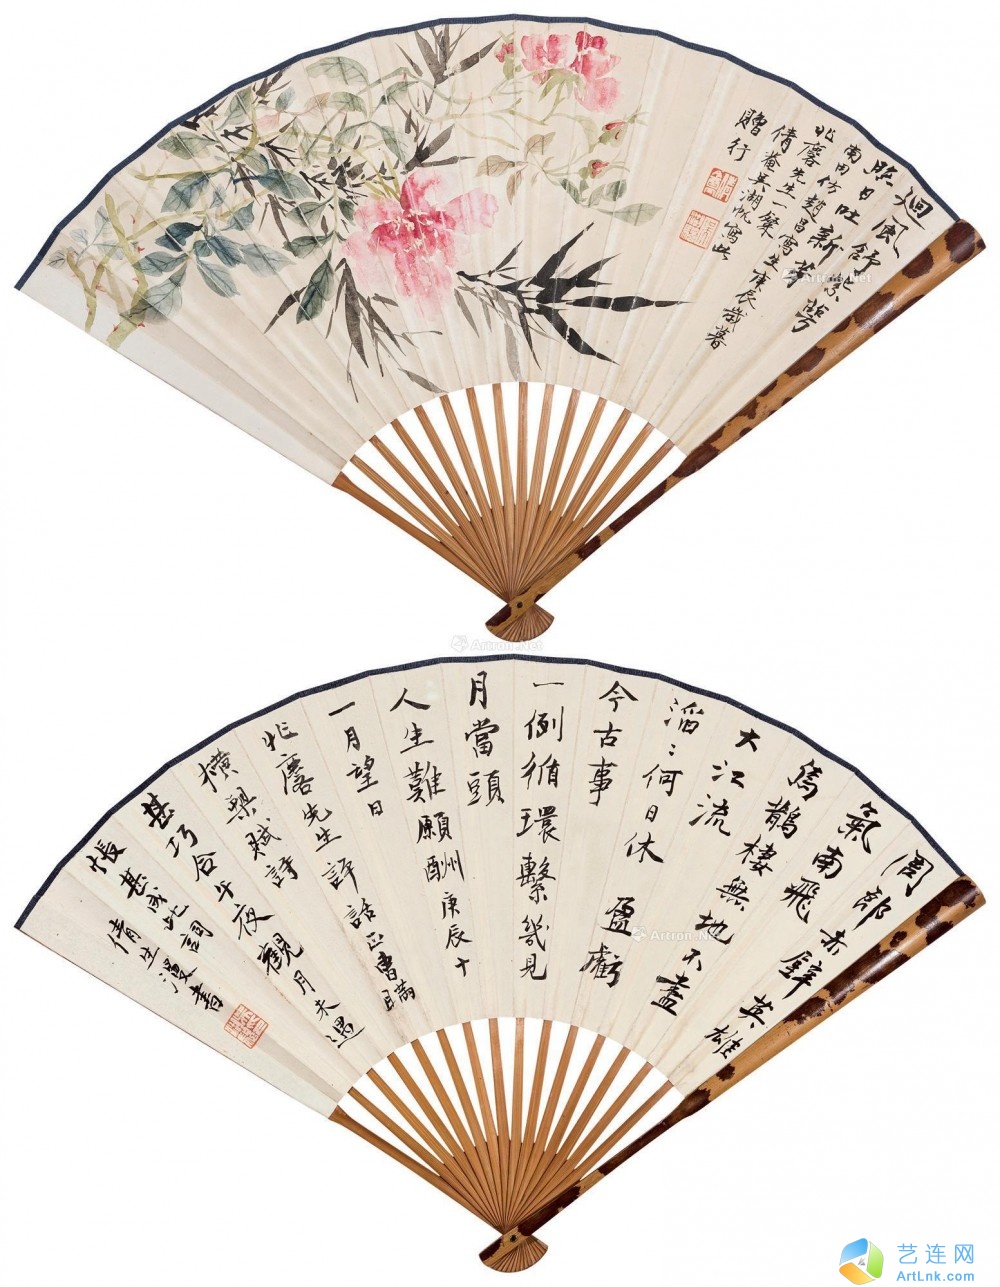 迴風舒紫萼
照日吐新芽
南田仿趙昌寫生庚辰歲暮
兆麐先生一粲
倩菴吳湖帆寫此
贈行
Artron.Net
周郎赤壁英雄
氣南飛
烏鵲棲無地不盡
大江流
滔〻何日休 盈虧
今古事
一例循環繫幾見
月當頭
人生難願酬庚辰十
一月望日
兆麐先生評話正曹瞞
橫槊賦詩
甚巧合午夜觀月未
悵甚成此詞
倩生漫書
Artron.Net
艺连网
ArtLnk.com